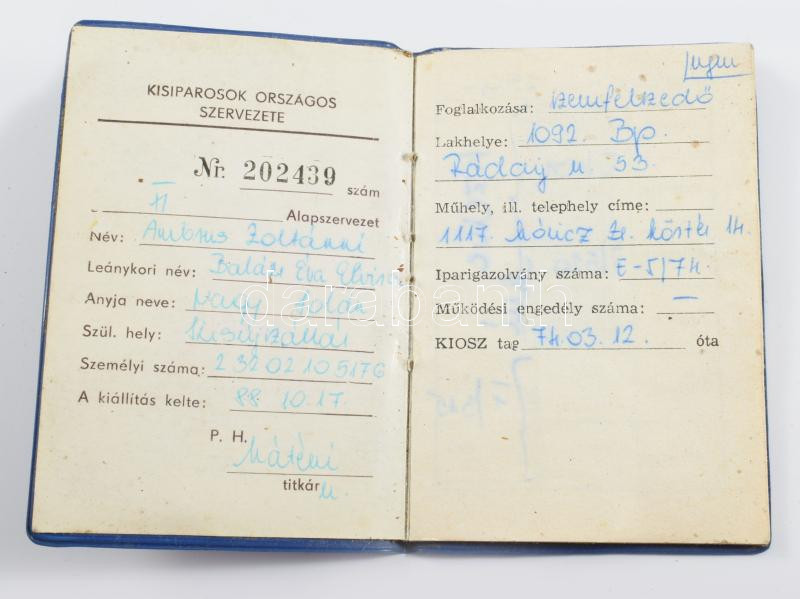 KISIPAROSOK ORSZÁGOS
SZERVEZETE
Nr. 202439 szám
Alapszervezet
Név: Ambrus Zoltánni
Leánykori név: Balázs Éva Elvira
Anyja neve: Nagy Zolán
Szül. hely: Kisújszállás
Személyi száma: 2 320210 5176
A kiállítás kelte: 88 10.17.
P. H.
Máténi
titkár
Foglalkozása: szemfelszedő
Lakhelye: 1092. Bp.
Ráday u. 53.
Műhely, ill. telephely címe:
1117. Móricz Zs. körtér 14.
Iparigazolvány száma: E-5/74.
Működési engedély száma: —
KIOSZ tag 74.03.12. óta
darabanth